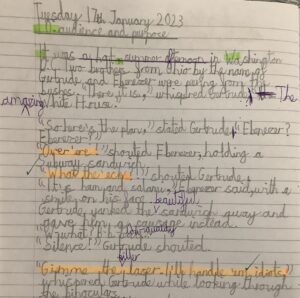 Tuesday 17th January 2023
audience and purpose
It was a hot summer afternoon in Washington
D.C. Two brothers from Ohio by the name of
Gertrude and Ebenezer were peering from the
bushes. "There it is," whispered Gertrude, "The
amazing White House."
"So here's the plan," stated Gertrude, "Ebenezer?
Ebenezer?"
"Over 'ere" shouted Ebenezer, holding a
subway sandwich.
"What the" shouted Gertrude,
"It's ham and salami," Ebenezer said with a
smile on his face. beautiful
Gertrude yanked the sandwich away and
gave him a sausage instead.
"
Silence!" Gertrude shouted.
killer
"Gimme the laser-filled handle 'um idiot"
whispered Gertrude while looking through
the binoculars.